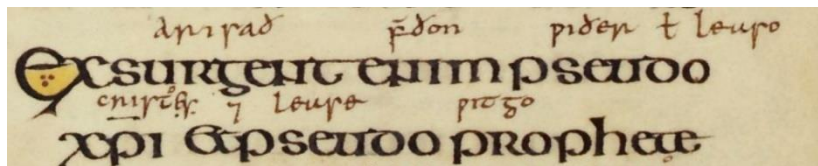 arisað f̄ðon ƿiðer ł leaso
Exsurgent enim pseudo
cristes ⁊ lease ƿitgo
xp̄i et pseudo prophete